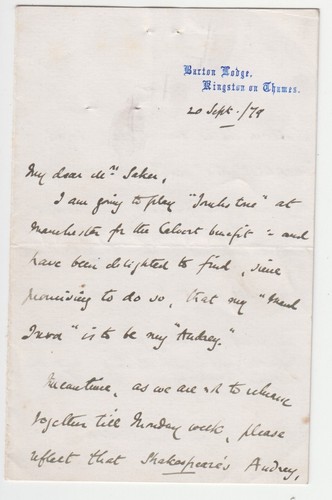 Barton Lodge,
Kingston on Thames.
20 Sept./79
My dear Mrs Saker,
I am going to play "Touchstone" at
Manchester for the Calvert benefit - and
have been delighted to find, since
promising to do so, that my "Maid
" is to be my "Audrey."
Meantime, as we are not to rehearse
together till Monday week, please
reflect that Shakespeare's Audrey,